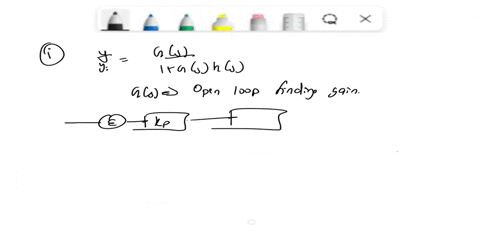 i
y/yi = G(s)/1+G(s)h(s)
G(s) ⇒ Open loop finding gain.
Σ kp